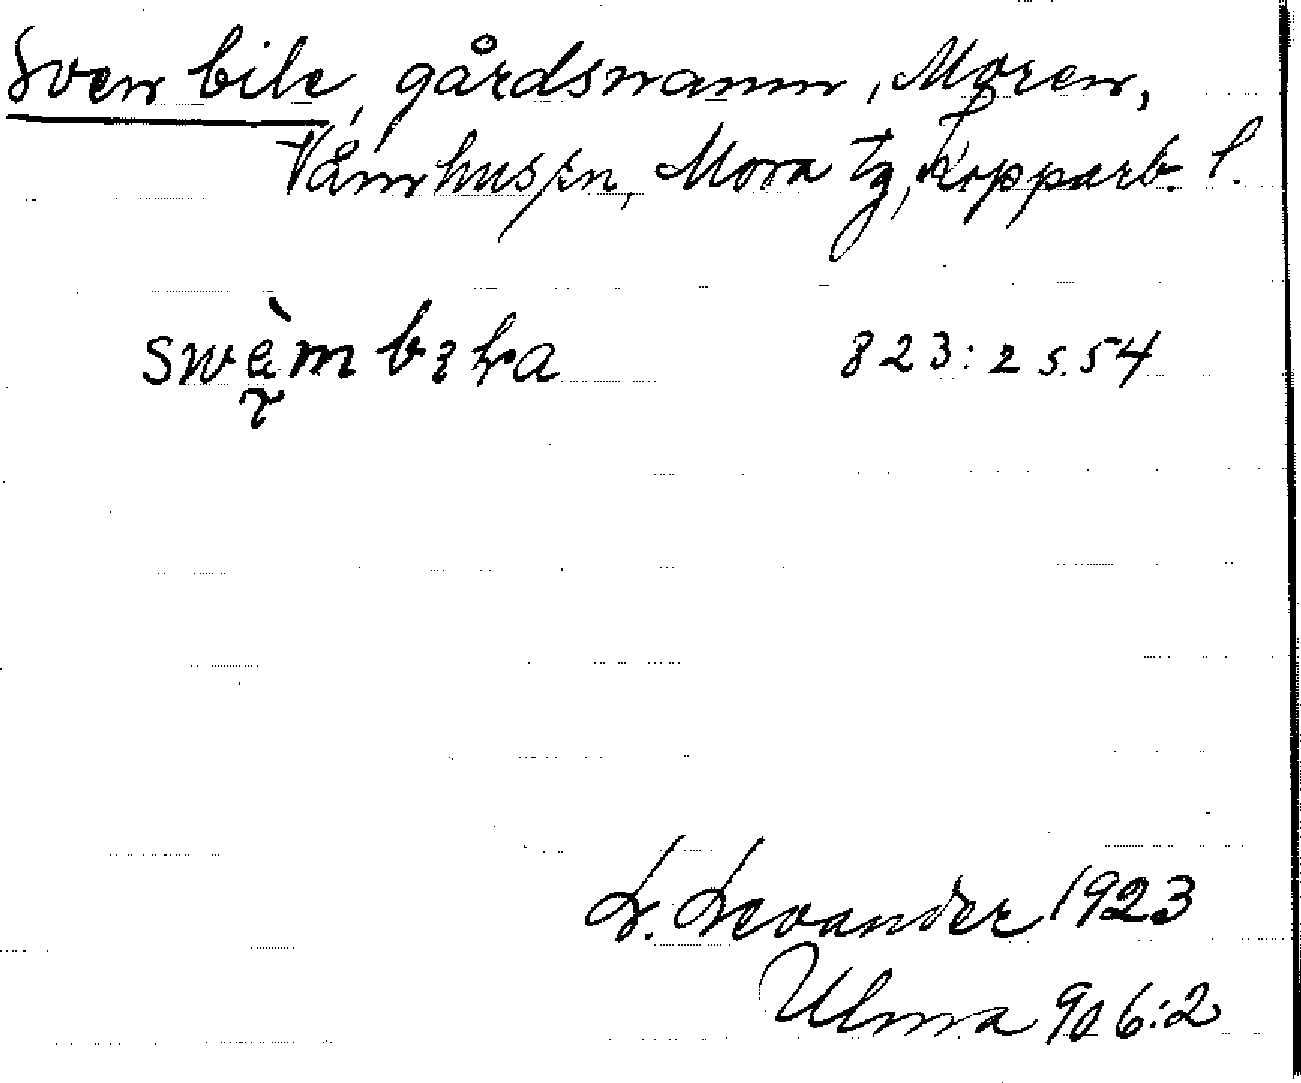 Sven bile, gårdsnamn, Moren,
Våmhus sn, Mora tg, Kopparb. l.
swḛ̀mbɩka 823: 2 s. 54
L. Levander 1923
Ulma 906:2